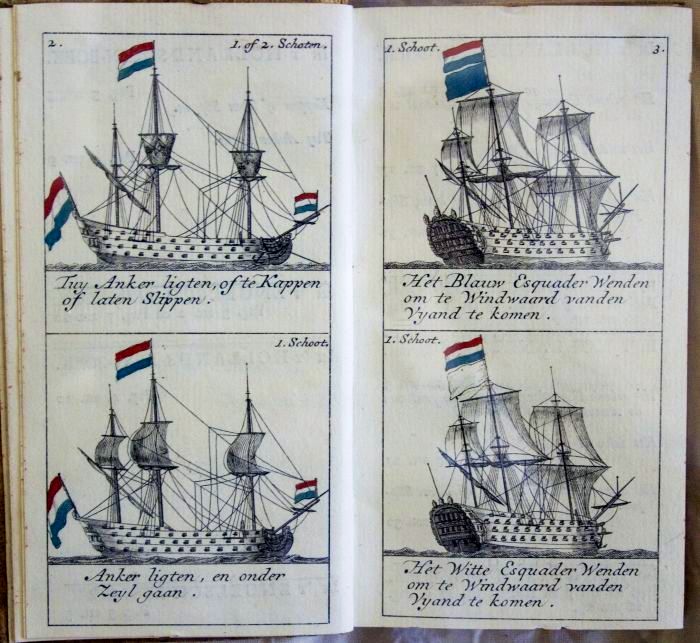 2.
1. of 2. Schoten.
Tuy Anker ligten, of te Kappen
of laten Slippen.
1. Schoot.
Anker ligten, en onder
Zeyl gaan.
1. Schoot.
3.
Het Blauw Esquader Wenden
om te Windwaard vanden
Vyand te komen.
1. Schoot.
Het Witte Esquader Wenden
om te Windwaard vanden
Vyand te komen.